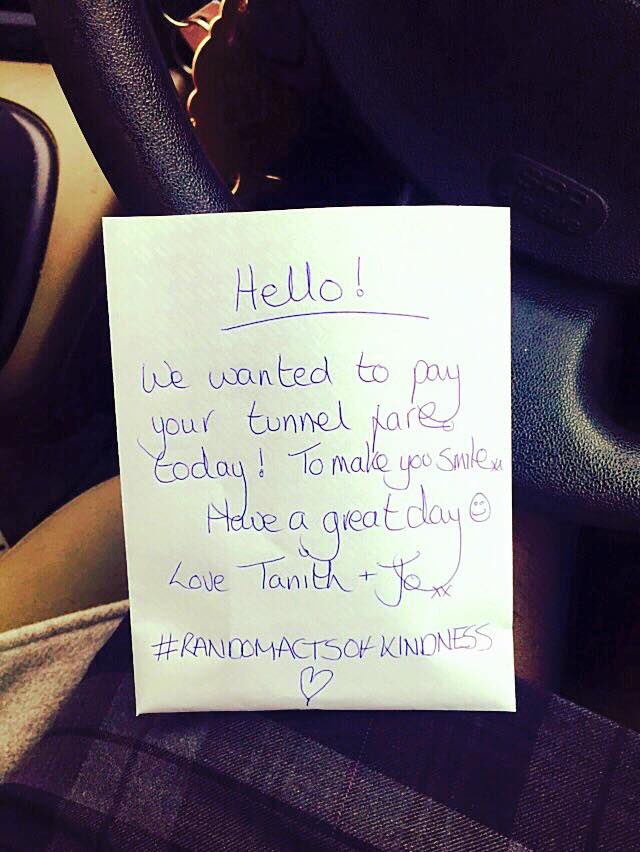 Hello!
We wanted to pay
your tunnel fare
today! To make you smile xx
Have a great day ☺
Love Tanith + Jo xx
#RANDOMACTSOFKINDNESS
♡